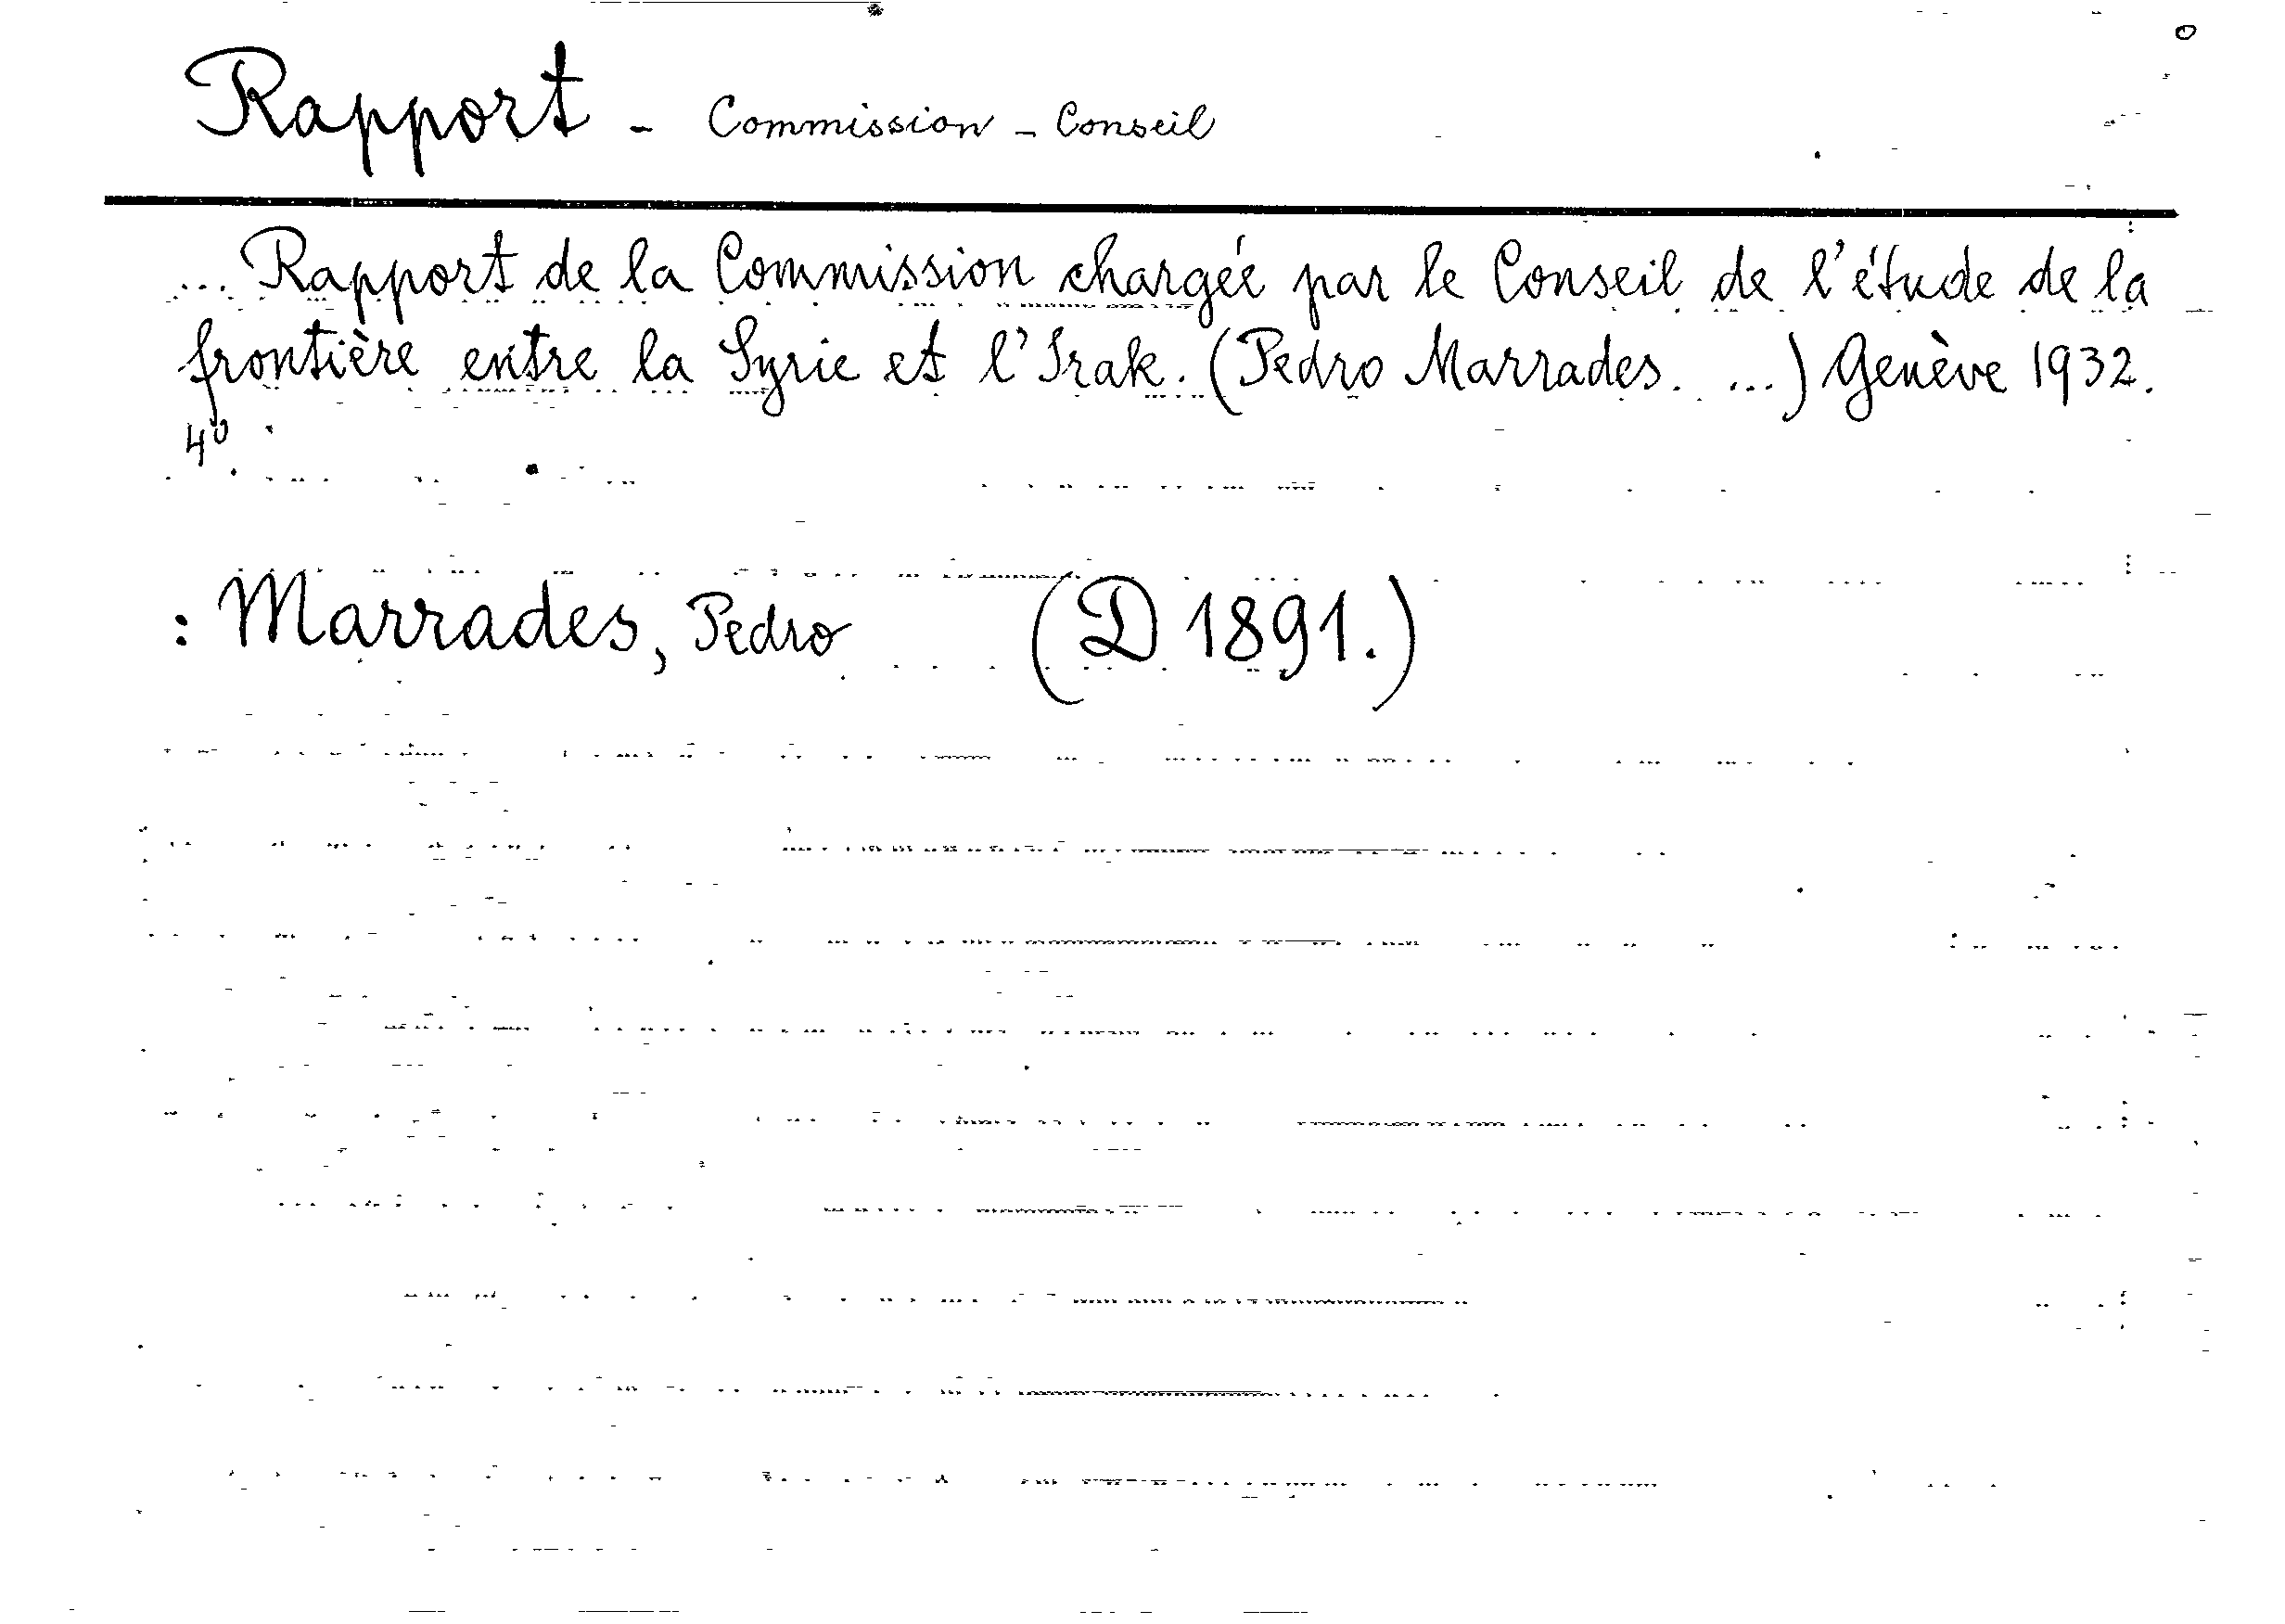 Rapport - Commission - Conseil
... Rapport de la Commission chargée par le Conseil de l'étude de la
frontière entre la Syrie et l'Irak. (Pedro Marrades. ...) Genève 1932.
4°
: Marrades, Pedro (D 1891.)